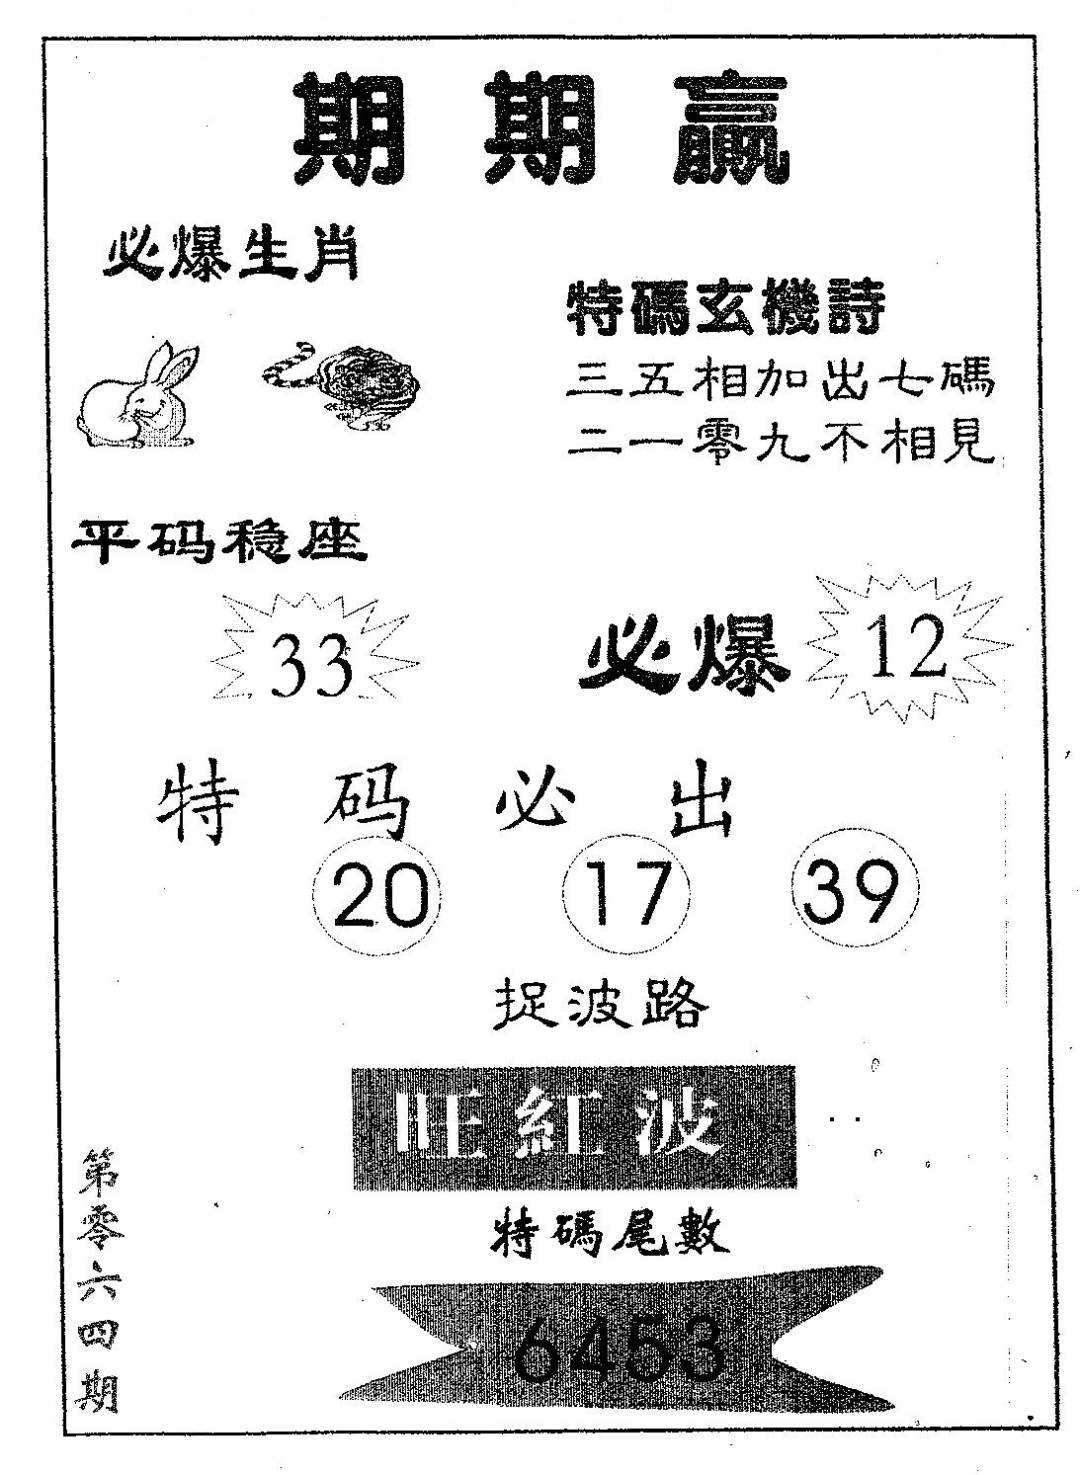 期期赢
必爆生肖
特碼玄機詩
三五相加出七碼
二一零九不相見
平码稳座
33
必爆 12
特码必出
20 17 39
捉波路
旺紅波
特碼尾數
6453
第零六四期